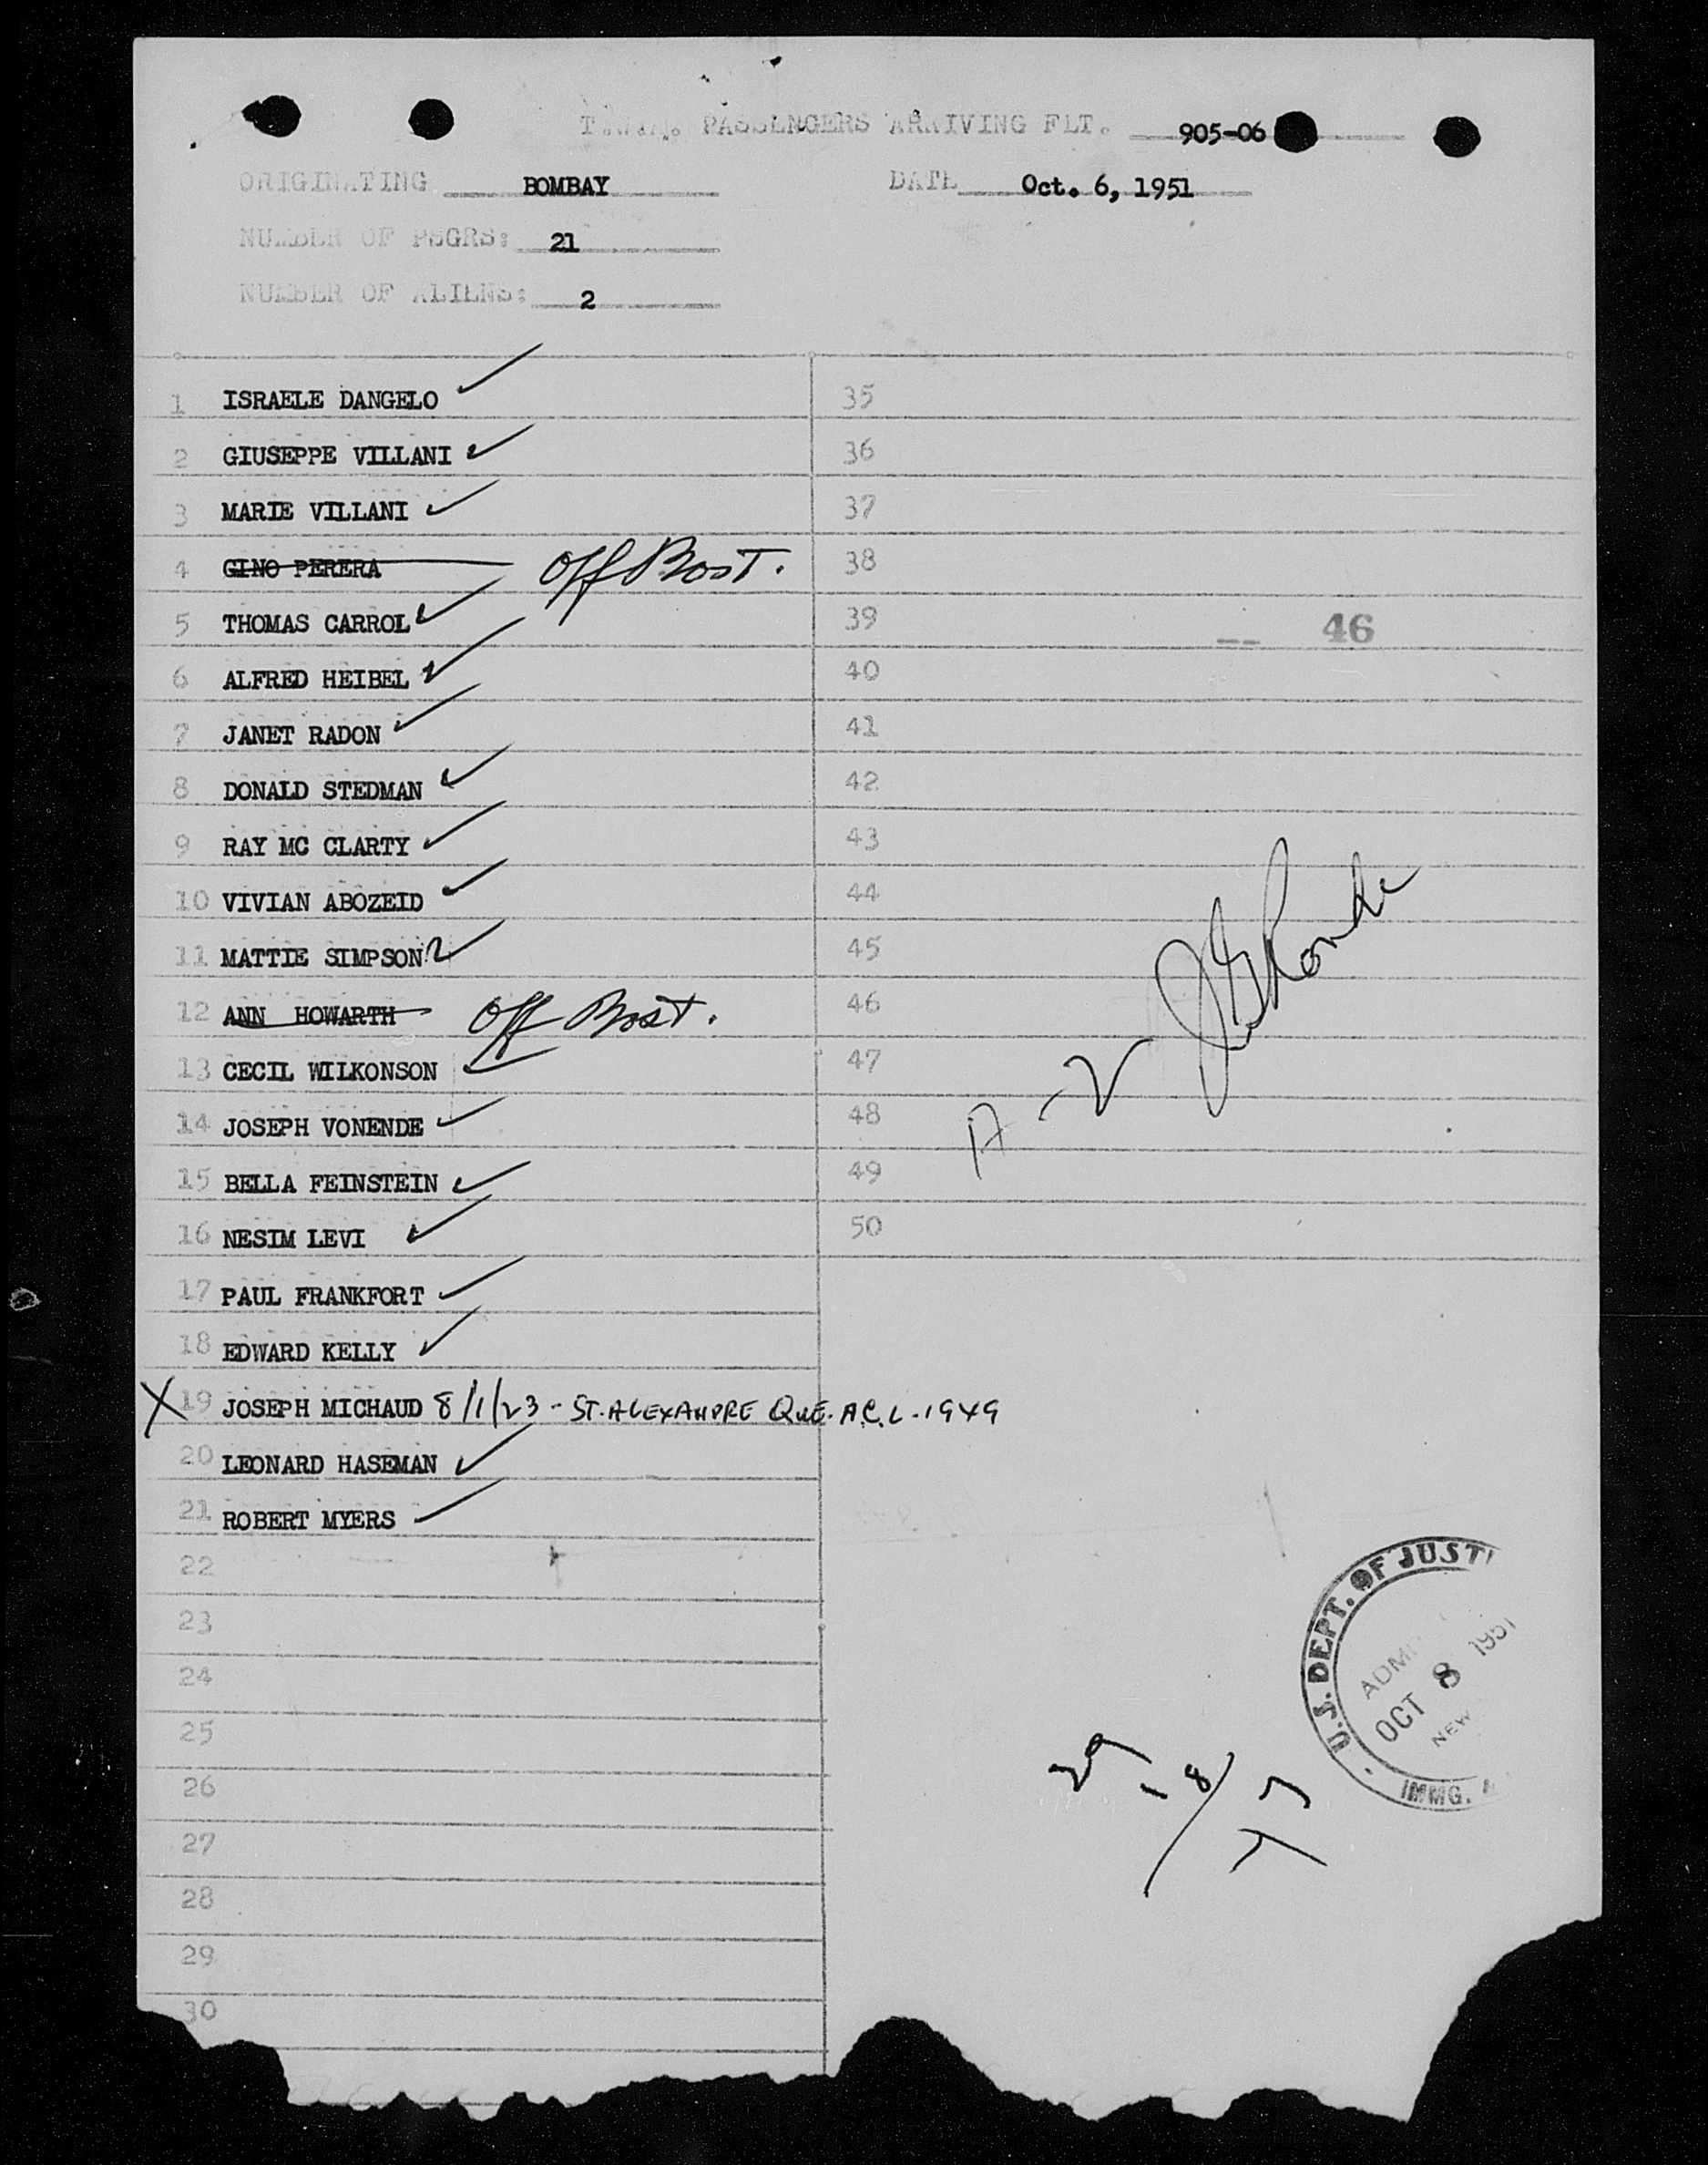 T.W.A. PASSENGERS ARRIVING FLT. 905-06
ORIGINATING BOMBAY DATE Oct. 6, 1951
NUMBER OF PSGRS: 21
NUMBER OF ALIENS: 2
1 ISRAELE DANGELO
2 GIUSEPPE VILLANI
3 MARIE VILLANI
4 GINO PERERA Off Bost.
5 THOMAS CARROL
6 ALFRED HEIBEL
7 JANET RADON
8 DONALD STEDMAN
9 RAY MC CLARTY
10 VIVIAN ABOZEID
11 MATTIE SIMPSON
12 ANN HOWARTH Off Bost.
13 CECIL WILKONSON
14 JOSEPH VONENDE
15 BELLA FEINSTEIN
16 NESIM LEVI
17 PAUL FRANKFORT
18 EDWARD KELLY
X 19 JOSEPH MICHAUD 8/1/23 - ST. ALEXANDRE QUE. A.C.L. - 1949
20 LEONARD HASEMAN
21 ROBERT MYERS
22
23
24
25
26
27
28
29
30
35
36
37
38
39
-- 46
40
41
42
43
44
45
46
47
48
49
50
U.S. DEPT. OF JUSTI
ADM
OCT 8 1951
NEW
IMMG.